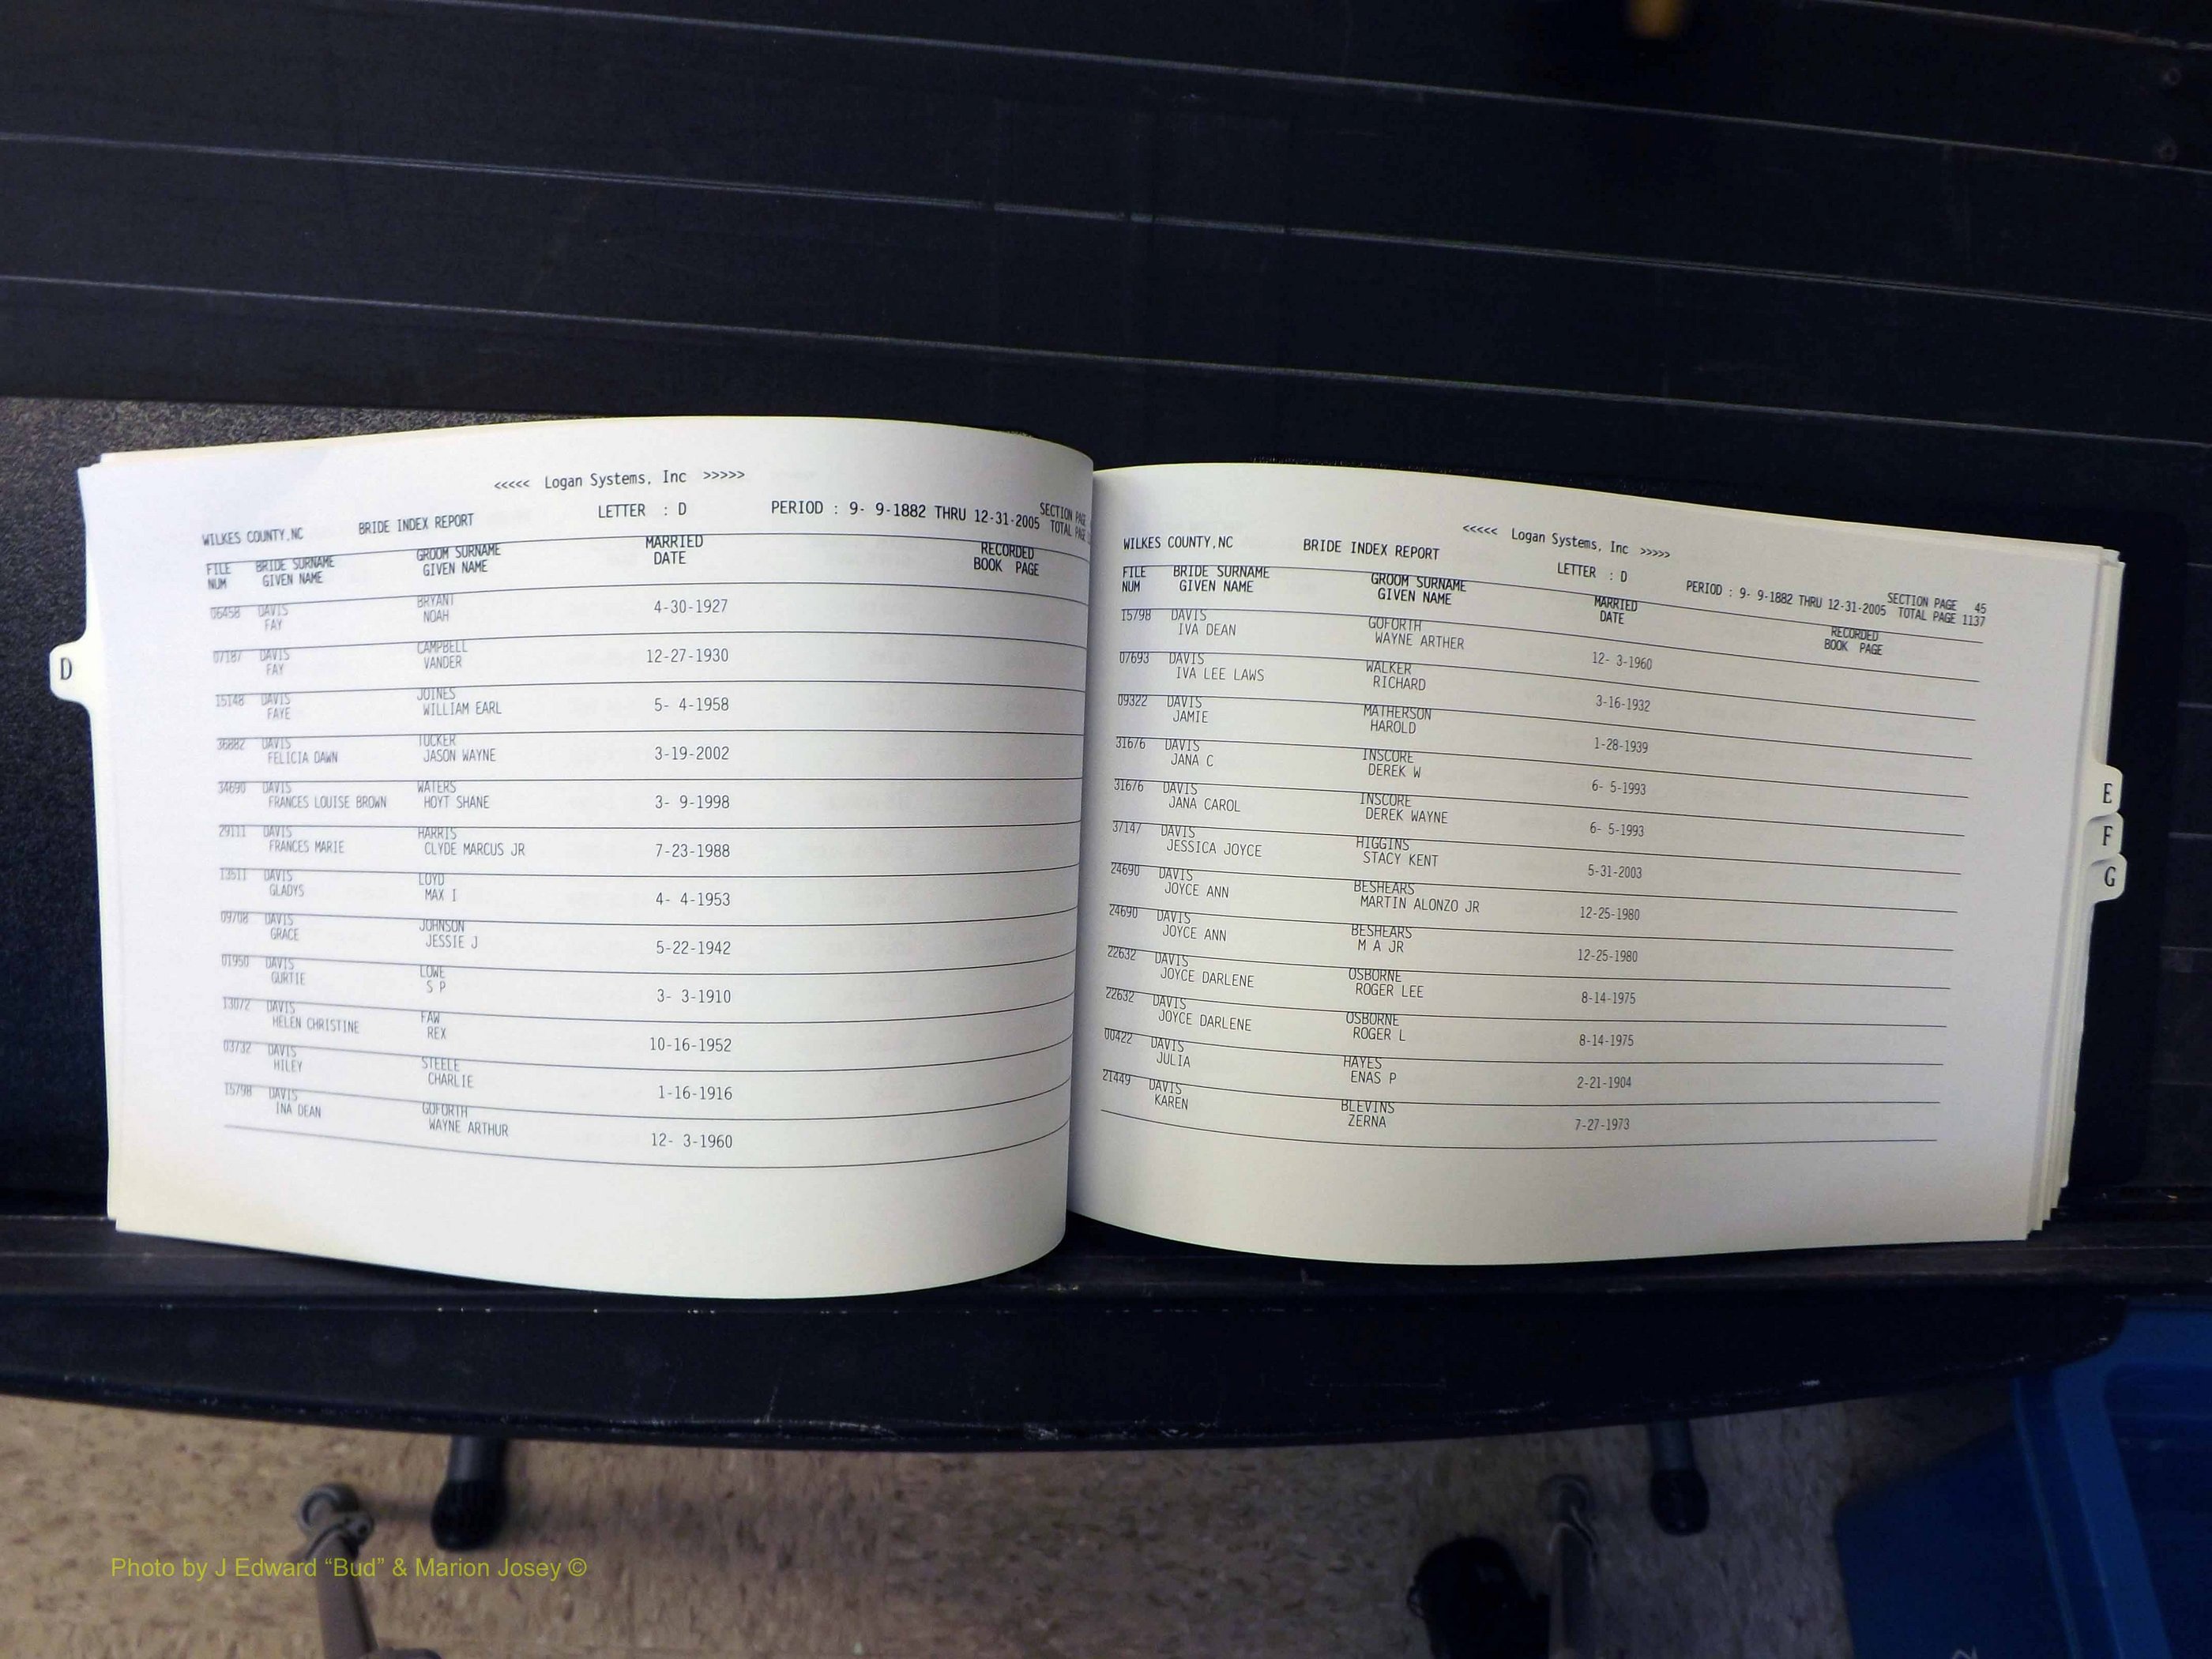 <<<<< Logan Systems, Inc >>>>>
WILKES COUNTY,NC BRIDE INDEX REPORT LETTER : D PERIOD : 9- 9-1882 THRU 12-31-2005 SECTION PAGE
TOTAL PAGE
FILE BRIDE SURNAME GROOM SURNAME MARRIED RECORDED
NUM GIVEN NAME GIVEN NAME DATE BOOK PAGE
06458 DAVIS BRYANT
FAY NOAH 4-30-1927
07187 DAVIS CAMPBELL
FAY VANDER 12-27-1930
15148 DAVIS JOINES
FAYE WILLIAM EARL 5- 4-1958
36882 DAVIS TUCKER
FELICIA DAWN JASON WAYNE 3-19-2002
34690 DAVIS WATERS
FRANCES LOUISE BROWN HOYT SHANE 3- 9-1998
29111 DAVIS HARRIS
FRANCES MARIE CLYDE MARCUS JR 7-23-1988
13511 DAVIS LOYD
GLADYS MAX I 4- 4-1953
09708 DAVIS JOHNSON
GRACE JESSIE J 5-22-1942
01950 DAVIS LOWE
GURTIE S P 3- 3-1910
13072 DAVIS FAW
HELEN CHRISTINE REX 10-16-1952
03732 DAVIS STEELE
HILEY CHARLIE 1-16-1916
15798 DAVIS GOFORTH
INA DEAN WAYNE ARTHUR 12- 3-1960
D
<<<<< Logan Systems, Inc >>>>>
WILKES COUNTY,NC BRIDE INDEX REPORT LETTER : D PERIOD : 9- 9-1882 THRU 12-31-2005 SECTION PAGE 45
TOTAL PAGE 1137
FILE BRIDE SURNAME GROOM SURNAME MARRIED RECORDED
NUM GIVEN NAME GIVEN NAME DATE BOOK PAGE
15798 DAVIS GOFORTH
IVA DEAN WAYNE ARTHER 12- 3-1960
07693 DAVIS WALKER
IVA LEE LAWS RICHARD 3-16-1932
09322 DAVIS MATHERSON
JAMIE HAROLD 1-28-1939
31676 DAVIS INSCORE
JANA C DEREK W 6- 5-1993
31676 DAVIS INSCORE
JANA CAROL DEREK WAYNE 6- 5-1993
37147 DAVIS HIGGINS
JESSICA JOYCE STACY KENT 5-31-2003
24690 DAVIS BESHEARS
JOYCE ANN MARTIN ALONZO JR 12-25-1980
24690 DAVIS BESHEARS
JOYCE ANN M A JR 12-25-1980
22632 DAVIS OSBORNE
JOYCE DARLENE ROGER LEE 8-14-1975
22632 DAVIS OSBORNE
JOYCE DARLENE ROGER L 8-14-1975
00422 DAVIS HAYES
JULIA ENAS P 2-21-1904
21449 DAVIS BLEVINS
KAREN ZERNA 7-27-1973
E
F
G
Photo by J Edward “Bud” & Marion Josey ©